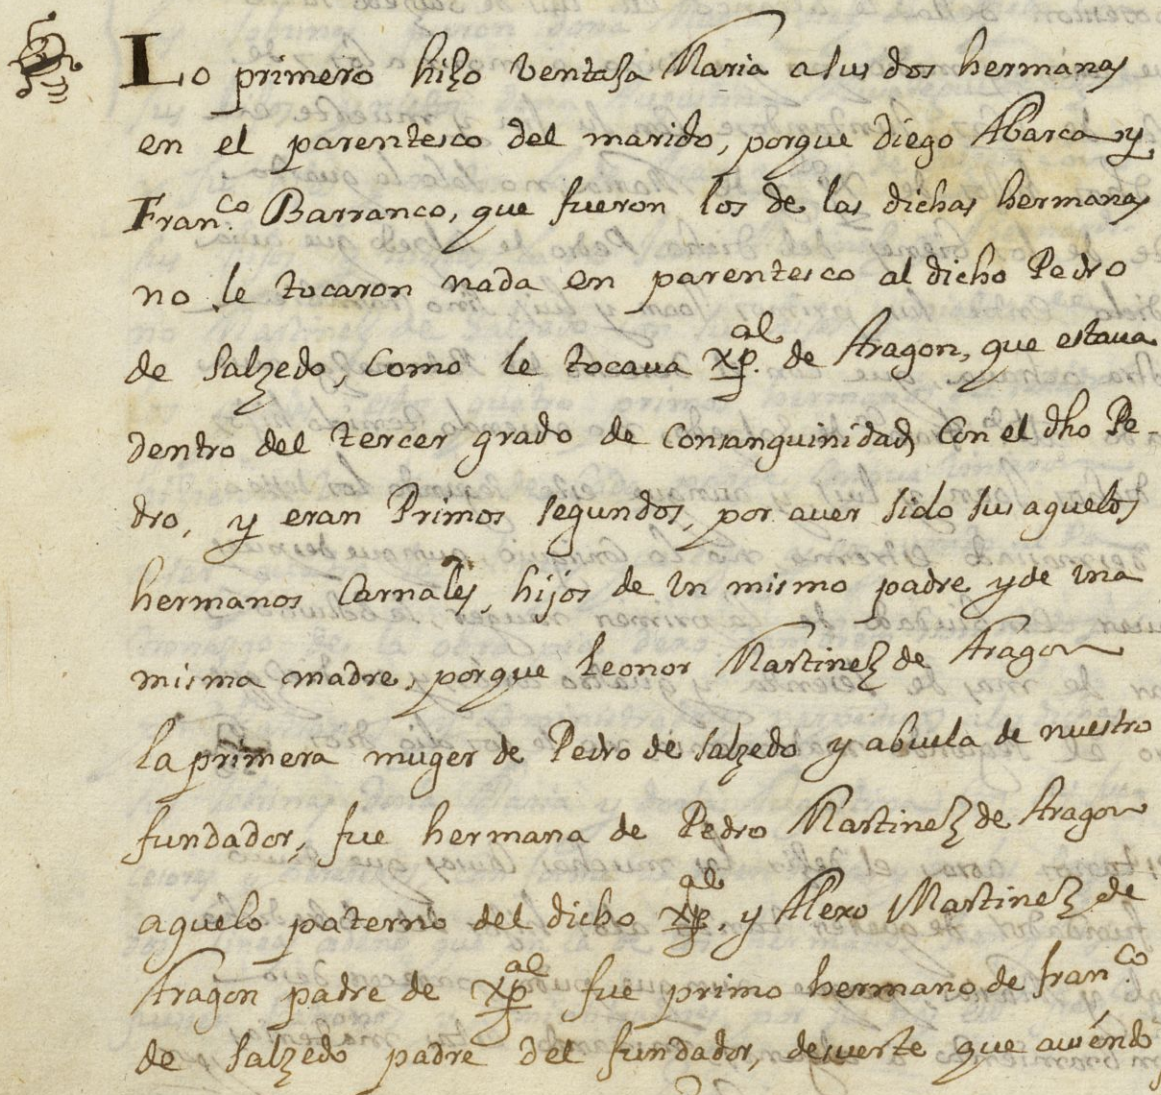 Lo primero hizo ventaja Maria a sus dos hermanas
en el parentesco del marido, porque Diego Abarca y
Fran.co Barranco, que fueron los de las dichas hermanas
no le tocaron nada en parentesco al dicho Pedro
de Salzedo, como le tocaua Xp.al de Aragon, que estaua
dentro del tercer grado de consanguinidad, con el dho Pe-
dro, y eran Primos segundos, por auer sido sus aguelos
hermanos carnales, hijos de un mismo padre y de una
misma madre, porque Leonor Martinez de Aragon
la primera muger de Pedro de Salzedo y abuela de nuestro
fundador, fue hermana de Pedro Martinez de Aragon
aguelo paterno del dicho Xp.al, y Alexo Martinez de
Aragon padre de Xp.al fue primo hermano de fran.co
de Salzedo padre del fundador, desuerte que auiendo